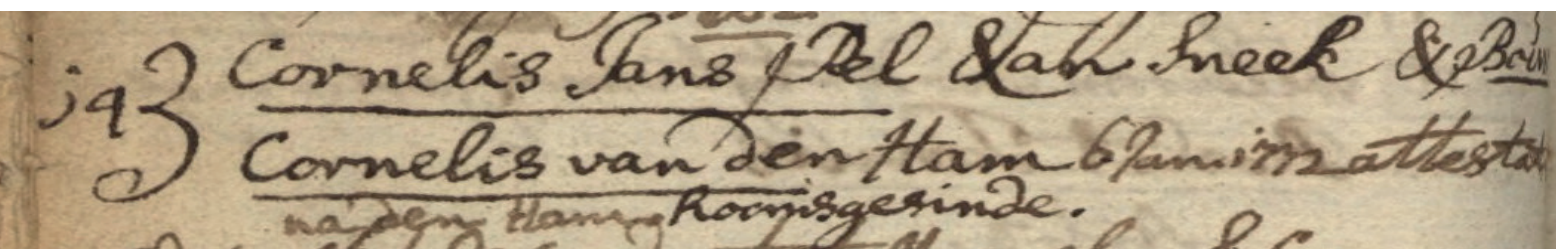 143 Cornelis Jans Pel Van Sneek &
Cornelis van den Ham 6 Jan. attestat
na den Ham Roomsgesinde.